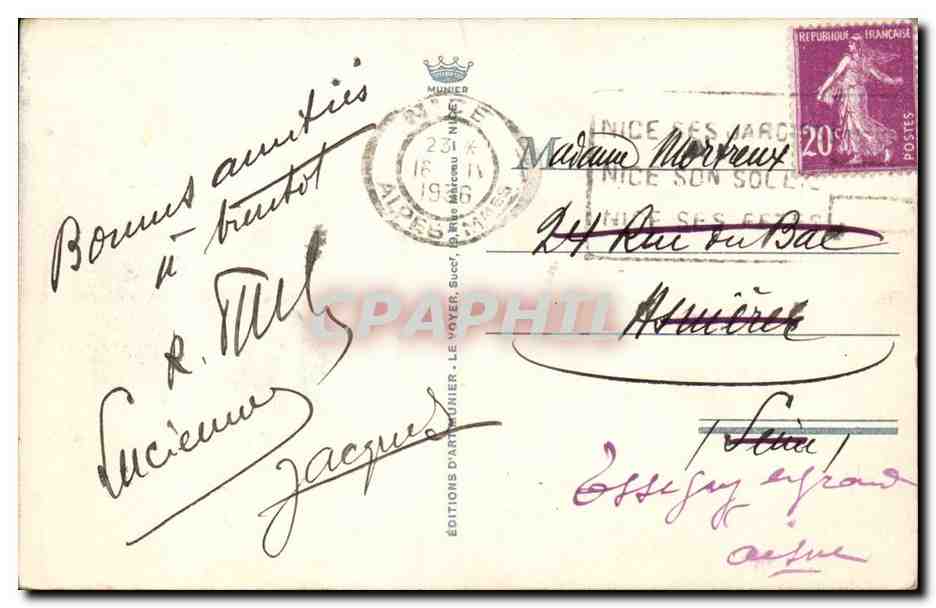 Bonnes amitiés
à bientôt
R.
Lucienne
Jacques
MUNIER
ÉDITIONS D'ART MUNIER - LE VOYER, Succr, 9, Rue Marceau - NICE
NICE
23 *
16 IV
1936
ALPES MMES
NICE SES JARD
NICE SON SOLEIL
NICE SES FETES
REPUBLIQUE FRANÇAISE
20c
POSTES
Madame Mortreux
24 Rue du Bac
Asnières
(Seine)
Essigny le grand
aisne
CPAPHIL